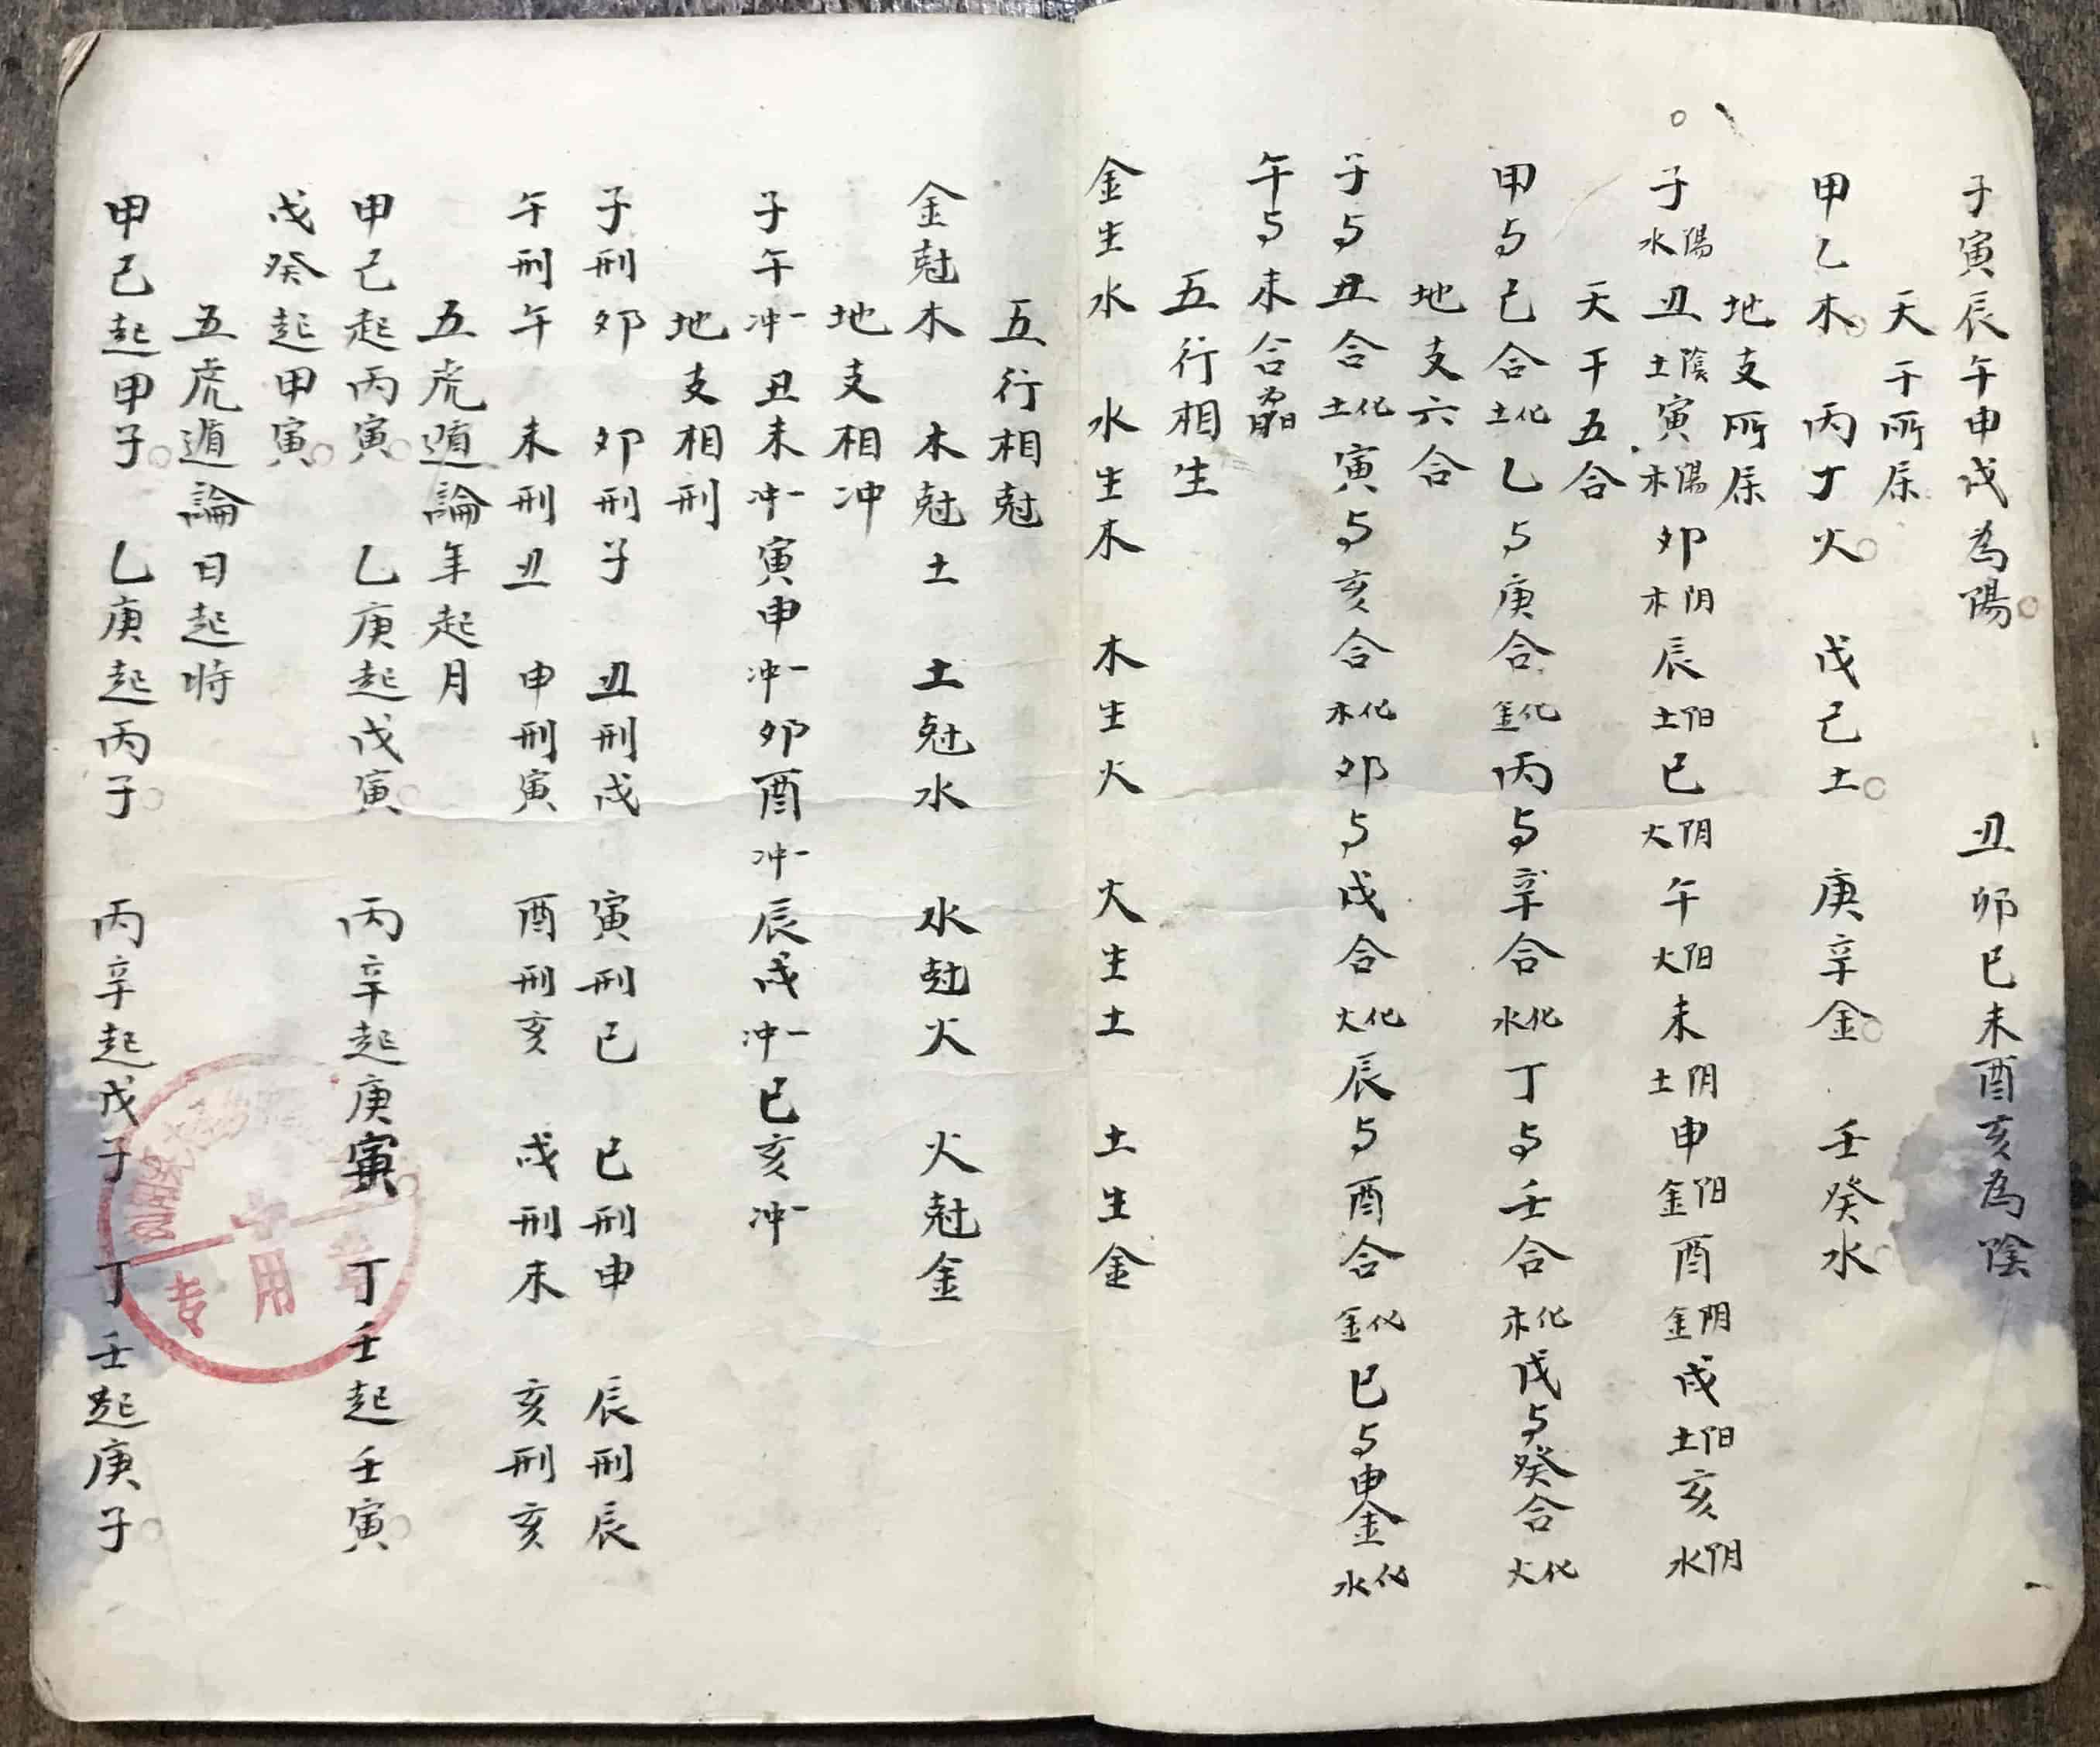 子寅辰午申戌為陽。 丑卯巳未酉亥為陰
天干所属
甲乙木。丙丁火。戊己土。庚辛金。壬癸水。
地支所属
子水陽丑土陰寅木陽卯木阴辰土阳巳火阴午火阳未土阴申金阳酉金阴戌土阳亥水阴
天干五合
甲与己合土化乙与庚合金化丙与辛合水化丁与壬合木化戊与癸合火化
地支六合
子与丑合土化寅与亥合木化卯与戌合火化辰与酉合金化巳与申金水化
午与未合為日月
五行相生
金生水 水生木 木生火 火生土 土生金
五行相尅
金尅木 木尅土 土尅水 水尅火 火尅金
地支相冲
子午一冲丑未一冲寅申一冲卯酉一冲辰戌一冲巳亥一冲
地支相刑
子刑卯 卯刑子 丑刑戌 寅刑巳 巳刑申 辰刑辰
午刑午 未刑丑 申刑寅 酉刑亥 戌刑未 亥刑亥
五虎遁論年起月
甲己起丙寅。乙庚起戊寅。丙辛起庚寅。丁壬起壬寅。
戊癸起甲寅。
五虎遁論日起時
甲己起甲子。乙庚起丙子。丙辛起戊子 丁壬起庚子。
专用